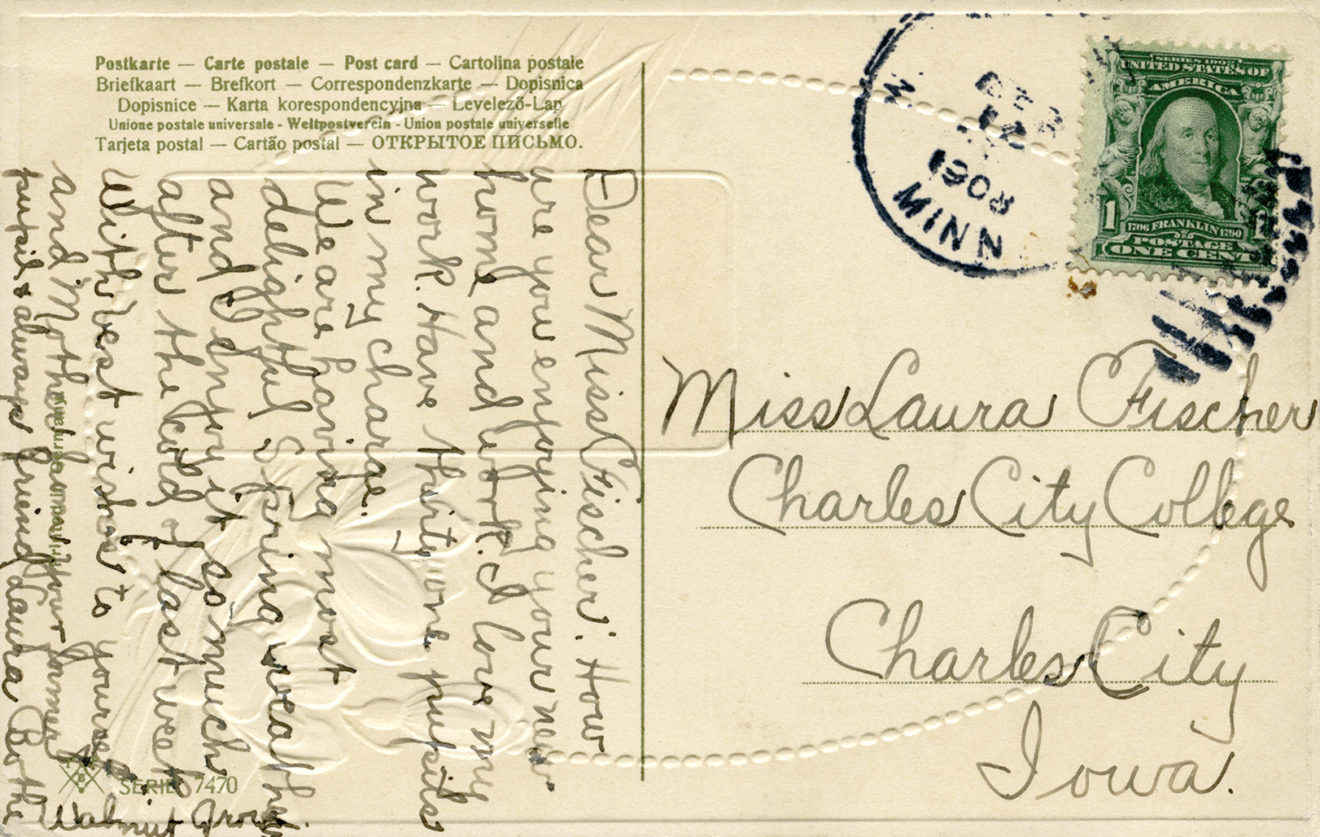 Postkarte — Carte postale — Post card — Cartolina postale
Briefkaart — Brefkort — Correspondenzkarte — Dopisnica
Dopisnice — Karta korespondencyjna — Levelező-Lap
Unione postale universale - Weltpostverein - Union postale universelle
Tarjeta postal — Cartão postal — ОТКРЫТОЕ ПИСЬМО.
Dear Miss Fischer: How
are you enjoying your new
home and work. I love my
work. Have thirty one pupils
in my charge.
We are having most
delightful Spring weather
and I enjoy it so much
after the cold of last week
With best wishes to yourself
and Mother your former
pupil & always friend Laura
Walnut Grove
SERIE 7470
FEB
1908
MINN
SERIES 1902
UNITED STATES OF
AMERICA
1 1
1706 FRANKLIN 1790
POSTAGE
ONE CENT
Miss Laura Fischer
Charles City College
Charles City
Iowa.